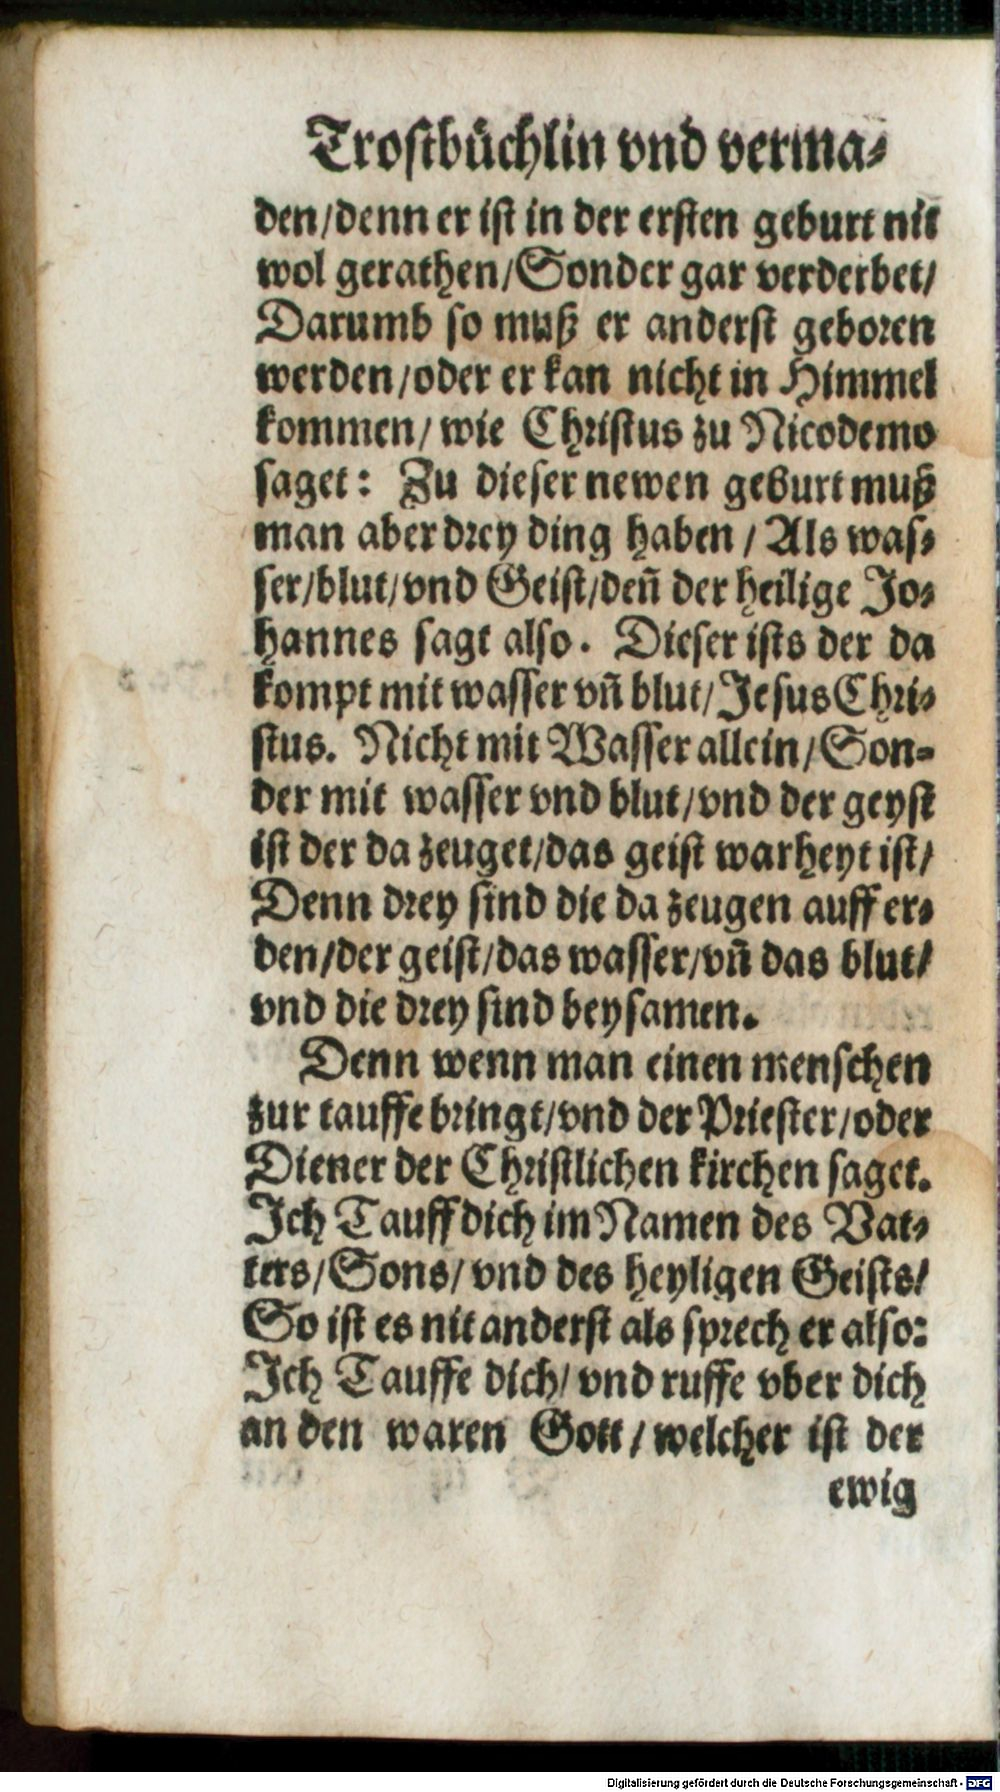 Trostbůchlin vnd verma⸗
den/denn er ist in der ersten geburt nit
wol gerathen/Sonder gar verderbet/
Darumb so muß er anderst geboren
werden/oder er kan nicht in Himmel
kommen/ wie Christus zu Nicodemo
saget: Zu dieser newen geburt muß
man aber drey ding haben / Als was⸗
ser/blut/vnd Geist/deñ der heilige Jo⸗
hannes sagt also. Dieser ists der da
kompt mit wasser vñ blut/Jesus Chri⸗
stus. Nicht mit Wasser allein/Son⸗
der mit wasser vnd blut/vnd der geyst
ist der da zeuget/das geist warheyt ist/
Denn drey sind die da zeugen auff er⸗
den/der geist/das wasser/vñ das blut/
vnd die drey sind beysamen.
Denn wenn man einen menschen
zur tauffe bringt/vnd der Priester/oder
Diener der Christlichen kirchen saget.
Jch Tauff dich im Namen des Vat⸗
ters/Sons/ vnd des heyligen Geists/
So ist es nit anderst als sprech er also:
Jch Tauffe dich/ vnd ruffe vber dich
an den waren Gott / welcher ist der
ewig
Digitalisierung gefördert durch die Deutsche Forschungsgemeinschaft - DFG